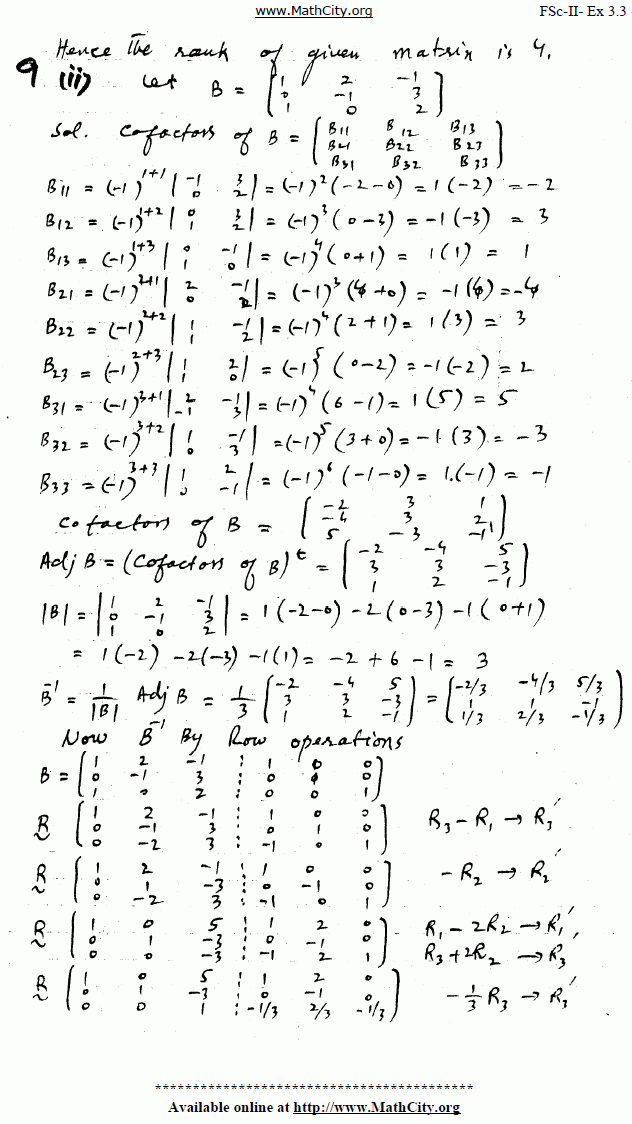 www.MathCity.org FSc-II- Ex 3.3
Hence the rank of given matrix is 4.
9 (ii) Let B = [1 2 -1; 0 -1 3; 1 0 2]
Sol. Cofactors of B = [B11 B12 B13; B21 B22 B23; B31 B32 B33]
B11 = (-1)^1+1 |-1 3; 0 2| = (-1)^2 (-2-0) = 1(-2) = -2
B12 = (-1)^1+2 |0 3; 1 2| = (-1)^3 (0-3) = -1(-3) = 3
B13 = (-1)^1+3 |0 -1; 1 0| = (-1)^4 (0+1) = 1(1) = 1
B21 = (-1)^2+1 |2 -1; 0 2| = (-1)^3 (4+0) = -1(4) = -4
B22 = (-1)^2+2 |1 -1; 1 2| = (-1)^4 (2+1) = 1(3) = 3
B23 = (-1)^2+3 |1 2; 1 0| = (-1)^5 (0-2) = -1(-2) = 2
B31 = (-1)^3+1 |2 -1; -1 3| = (-1)^4 (6-1) = 1(5) = 5
B32 = (-1)^3+2 |1 -1; 0 3| = (-1)^5 (3+0) = -1.(3) = -3
B33 = (-1)^3+3 |1 2; 0 -1| = (-1)^6 (-1-0) = 1.(-1) = -1
Cofactors of B = [-2 3 1; -4 3 2; 5 -3 -1]
Adj B = (Cofactors of B)^t = [-2 -4 5; 3 3 -3; 1 2 -1]
|B| = |1 2 -1; 0 -1 3; 1 0 2| = 1(-2-0) -2(0-3) -1(0+1)
= 1(-2) -2(-3) -1(1) = -2 + 6 - 1 = 3
B^-1 = 1/|B| Adj B = 1/3 [-2 -4 5; 3 3 -3; 1 2 -1] = [-2/3 -4/3 5/3; 1 1 -1; 1/3 2/3 -1/3]
Now B^-1 By Row operations
B = [1 2 -1 : 1 0 0; 0 -1 3 : 0 0 0; 1 0 2 : 0 0 1]
R~ [1 2 -1 : 1 0 0; 0 -1 3 : 0 1 0; 0 -2 3 : -1 0 1] R3 - R1 → R3'
R~ [1 2 -1 : 1 0 0; 0 1 -3 : 0 -1 0; 0 -2 3 : -1 0 1] -R2 → R2'
R~ [1 0 5 : 1 2 0; 0 1 -3 : 0 -1 0; 0 0 -3 : -1 2 1] R1 - 2R2 → R1', R3 + 2R2 → R3
R~ [1 0 5 : 1 2 0; 0 1 -3 : 0 -1 0; 0 0 1 : -1/3 2/3 -1/3] -1/3 R3 → R3'
******************************************
Available online at http://www.MathCity.org